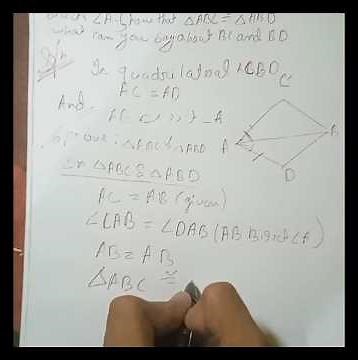 bisects ∠A. Show that △ABC ≅ △ABD
what can you say about BC and BD
In quadrilateral ACBD
AC = AD
And
△ABC & △ABD
In △ABC & △ABD
AC = AB (given)
∠CAB = ∠DAB (AB Bisect ∠A)
AB = AB
△ABC ≅
C
A
B
D